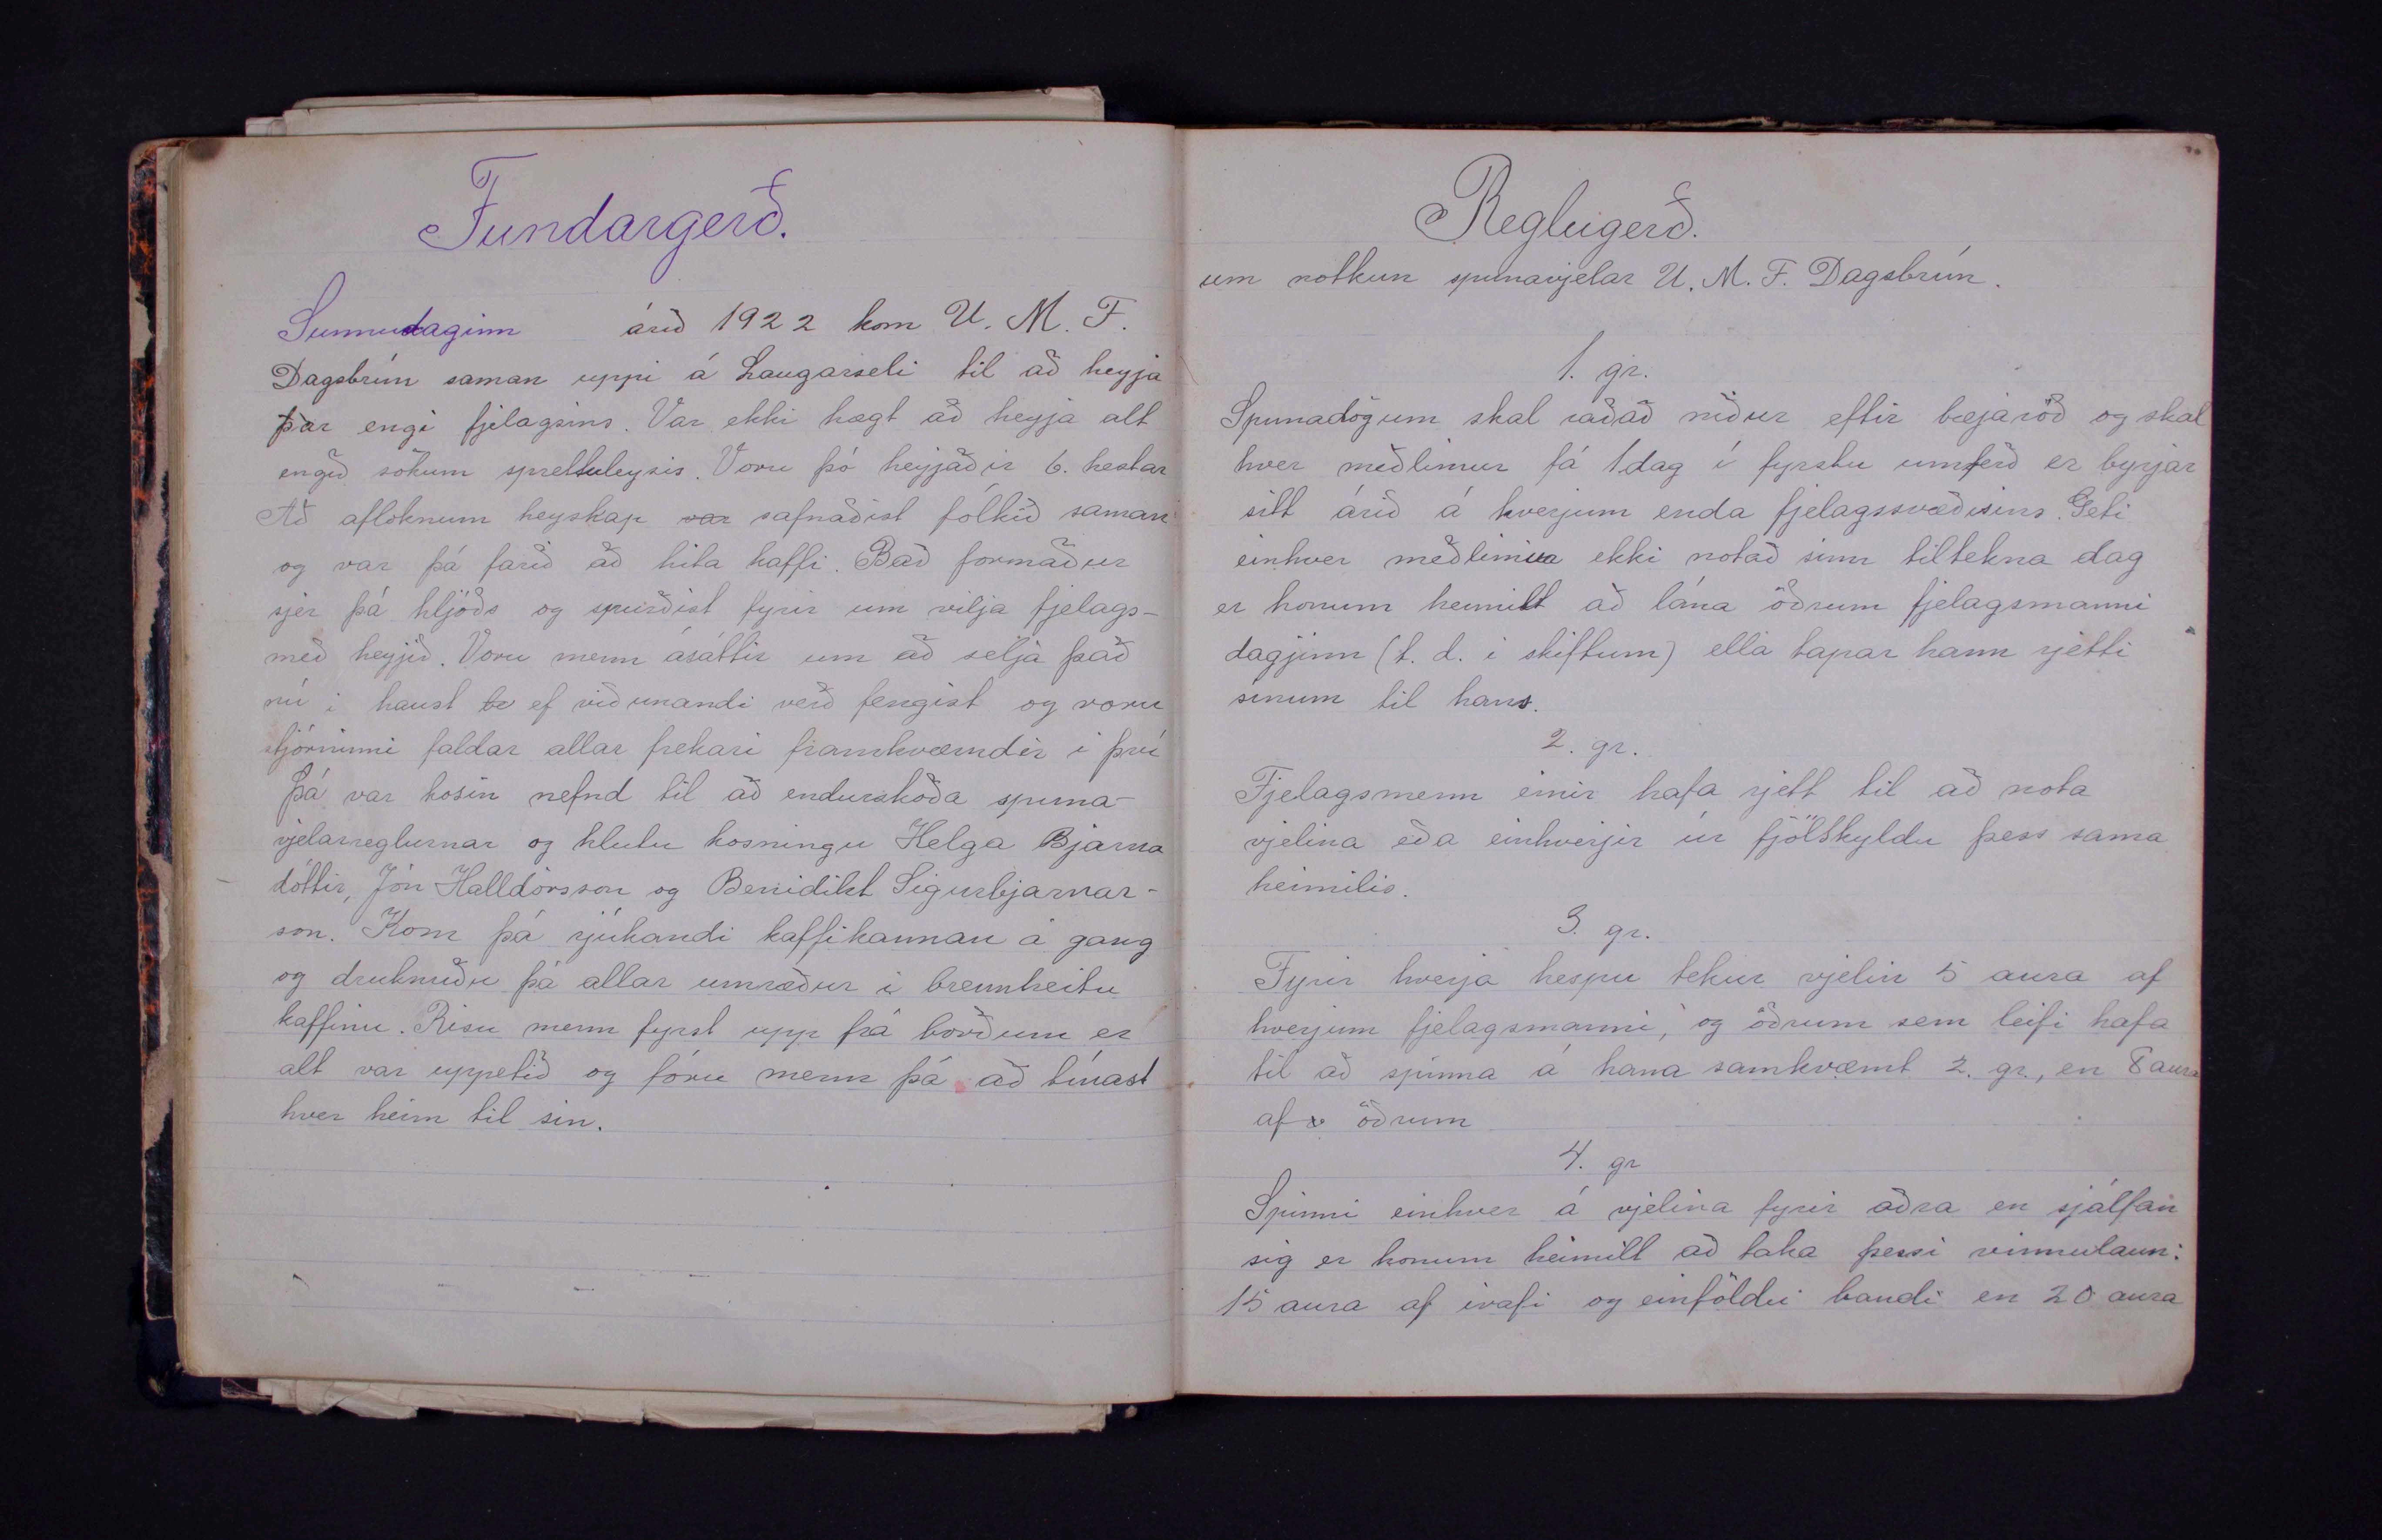 Fundargerð.
Sunnudaginn árið 1922 kom U. M. F.
Dagsbrún saman uppi á Laugarseli til að heyja
þar engi fjelagsins. Var ekki hægt að heyja alt
engið sökum sprettuleysis. Voru þó heyjaðir 6. hestar
Að afloknum heyskap var safnaðist fólkið saman
og var þá farið að hita kaffi. Bað formaður
sjer þá hljóðs og spurðist fyrir um vilja fjelags-
með heyjið. Voru menn ásáttir um að selja það
nú i haust ef viðunandi verð fengist og voru
stjórninni faldar allar frekari framkvæmdir i því
Þá var kosin nefnd til að endurskoða spuna-
vjelarreglurnar og hlutu kosningu Helga Bjarna
dóttir, Jón Halldórsson og Benidikt Sigurbjarnar-
son. Kom þá rjúkandi kaffikannan á gang
og druknuðu þá allar umræður i brennheitu
kaffinu. Risu menn fyrst upp frá borðum er
alt var uppetið og fóru menn þá að tínast
hver heim til sin.
Reglugerð.
um notkun spunavjelar U. M. F. Dagsbrún.
1. gr.
Spunadögum skal raðað niður eftir bæjaröð og skal
hver meðlimur fá 1 dag í fyrstu umferð er byrjar
sitt árið á hverjum enda fjelagssvæðisins. Geti
einhver meðlimur ekki notað sinn tiltekna dag
er honum heimilt að lána öðrum fjelagsmanni
dagjinn (t. d. i skiftum) ella tapar hann rjetti
sínum til hans.
2. gr.
Fjelagsmenn einir hafa rjett til að nota
vjelina eða einhverjir úr fjölskyldu þess sama
heimilis.
3. gr.
Fyrir hverja hespu tekur vjelin 5 aura af
hverjum fjelagsmanni, og öðrum sem leifi hafa
til að spinna á hana samkvæmt 2. gr., en 8 aura
af öðrum
4. gr
Spinni einhver á vjelina fyrir aðra en sjálfan
sig er honum heimilt að taka þessi vinnulaun:
15 aura af ivafi og einföldu bandi en 20 aura